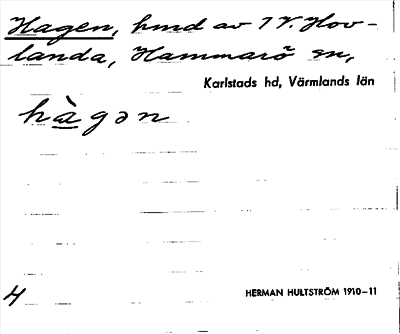 Hagen, hmd av 1 V. Hov-
landa, Hammarö sn,
Karlstads hd, Värmlands län
hàgən
H
HERMAN HULTSTRÖM 1910–11